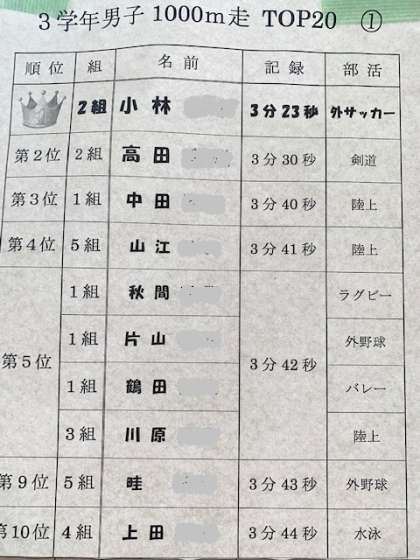 3学年男子 1000m走 TOP20 ①
順位 組 名前 記録 部活
2組 小林 3分23秒 外サッカー
第2位 2組 高田 3分30秒 剣道
第3位 1組 中田 3分40秒 陸上
第4位 5組 山江 3分41秒 陸上
第5位 1組 秋間 3分42秒 ラグビー
1組 片山 外野球
1組 鶴田 バレー
3組 川原 陸上
第9位 5組 畦 3分43秒 外野球
第10位 4組 上田 3分44秒 水泳